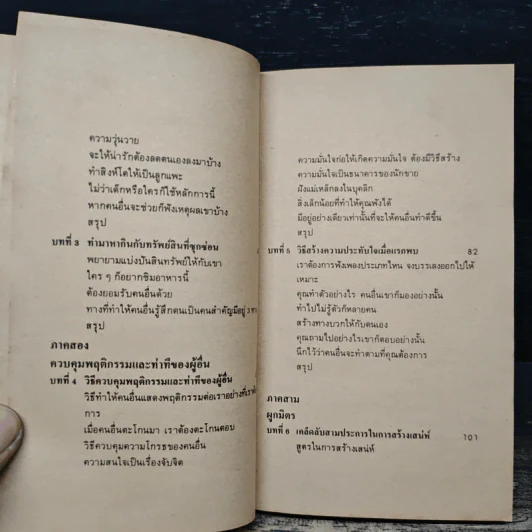 ความวุ่นวาย
จะให้น่ารักต้องลดตนเองลงมาบ้าง
ทำสิงห์โตให้เป็นลูกแพะ
ไม่ว่าเด็กหรือใครก็ใช้หลักการนี้
หากคนอื่นจะช่วยก็ฟังเหตุผลเขาบ้าง
สรุป
บทที่ 3 ทำมาหากินกับทรัพย์สินที่ซุกซ่อน
พยายามแบ่งปันสินทรัพย์ให้กับเขา
ใคร ๆ ก็อยากชิมอาหารนี้
ต้องยอมรับคนอื่นด้วย
ทางที่ทำให้คนอื่นรู้สึกตนเป็นคนสำคัญมีอยู่ 3
สรุป
ภาคสอง
ควบคุมพฤติกรรมและท่าทีของผู้อื่น
บทที่ 4 วิธีควบคุมพฤติกรรมและท่าทีของผู้อื่น
วิธีทำให้คนอื่นแสดงพฤติกรรมต่อเราอย่างที่เรา
การ
เมื่อคนอื่นตะโกนมา เราต้องตะโกนตอบ
วิธีควบคุมความโกรธของคนอื่น
ความสนใจเป็นเรื่องจับจิต
ความมั่นใจก่อให้เกิดความมั่นใจ ต้องมีวิธีสร้าง
ความมั่นใจเป็นธนาคารของนักขาย
ฝังแม่เหล็กลงในบุคลิก
สิ่งเล็กน้อยที่ทำให้คุณพังได้
มีอยู่อย่างเดียวเท่านั้นที่จะให้คนอื่นทำดีขึ้น
สรุป
บทที่ 5 วิธีสร้างความประทับใจเมื่อแรกพบ 82
เราต้องการฟังเพลงประเภทไหน จงบรรเลงออกไปให้
เหมาะ
คุณทำตัวอย่างไร คนอื่นเขาก็มองอย่างนั้น
ทำไปไม่รู้ตัวก็หลายคน
สร้างทางบวกให้กับตนเอง
คุณถามไปอย่างไรเขาก็ตอบอย่างนั้น
นึกไว้ว่าคนอื่นจะทำตามที่คุณต้องการ
สรุป
ภาคสาม
ผูกมิตร
บทที่ 6 เคล็ดลับสามประการในการสร้างเสน่ห์ 101
สูตรในการสร้างเสน่ห์